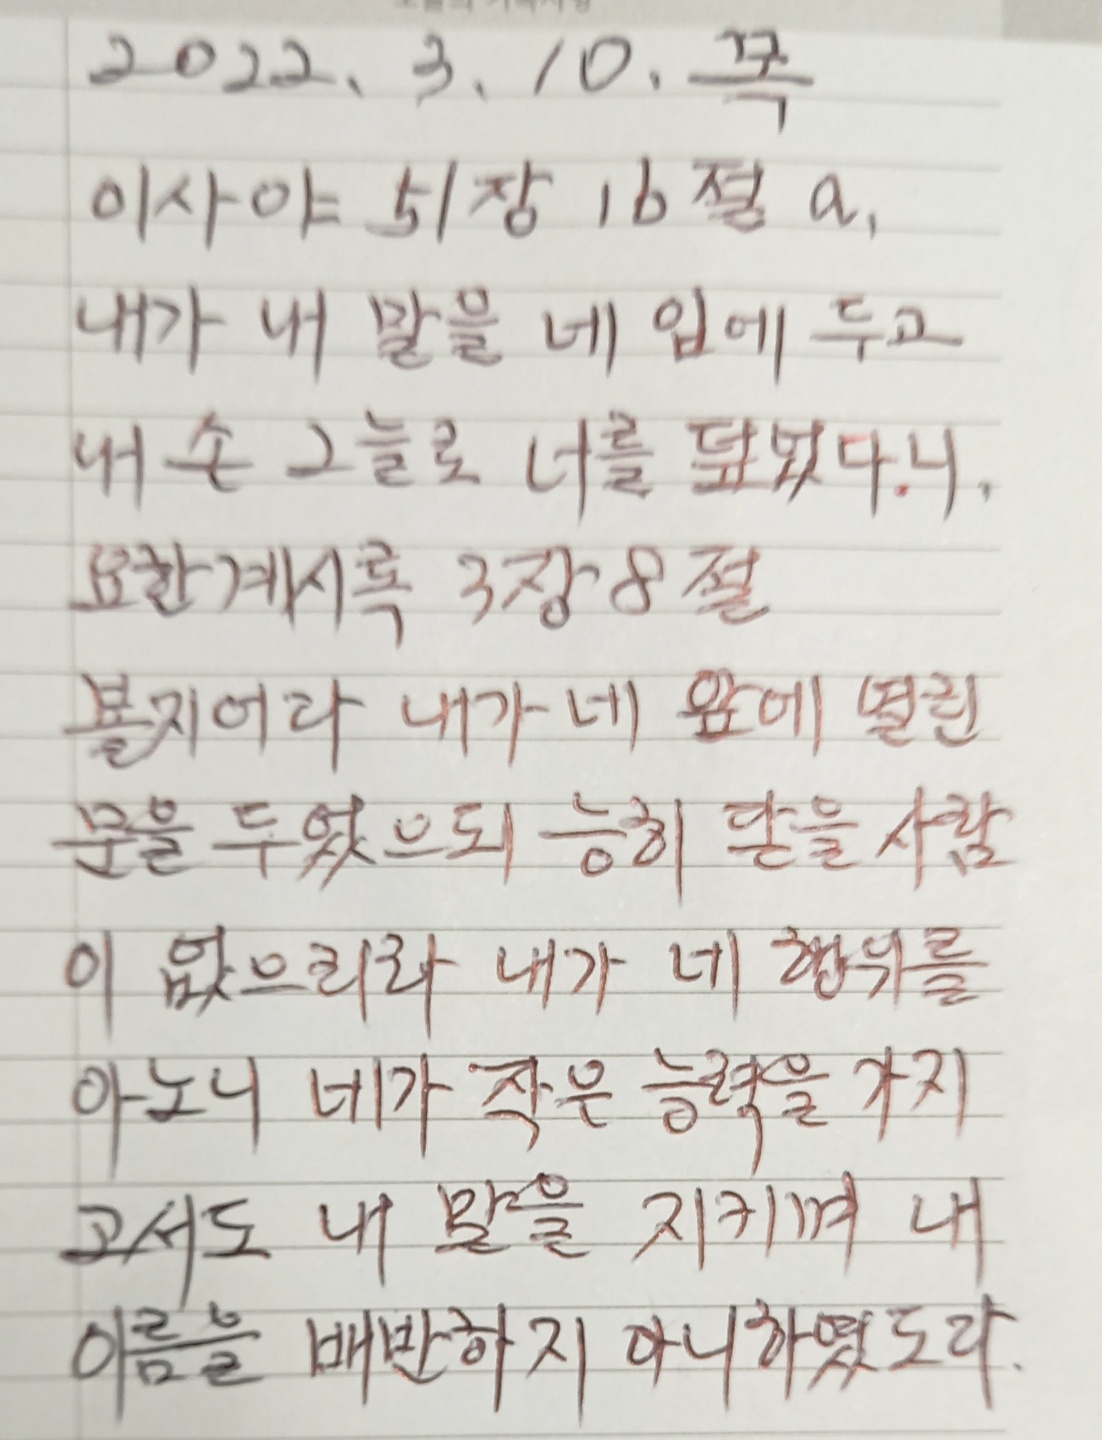 2022. 3. 10. 목
이사야 51장 16절 a.
내가 내 말을 네 입에 두고
내 손 그늘로 너를 덮었다.니.
요한계시록 3장 8절
볼지어다 내가 네 앞에 열린
문을 두었으되 능히 닫을 사람
이 없으리라 내가 네 행위를
아노니 네가 작은 능력을 가지
고서도 내 말을 지키며 내
이름을 배반하지 아니하였도다.